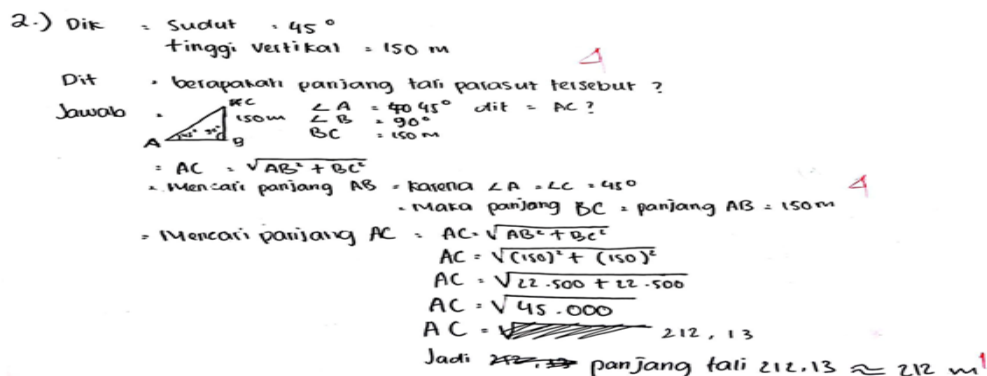 2.) Dik : Sudut : 45°
tinggi vertikal = 150 m
4
Dit : berapakah panjang tali parasut tersebut ?
Jawab : C 150m A B ∠A = 45° dit = AC ?
∠B = 90°
BC = 150 m
= AC = √AB² + BC²
= Mencari panjang AB = karena ∠A = ∠C = 45°
4
- Maka panjang BC = panjang AB = 150m
= Mencari panjang AC = AC = √AB² + BC²
AC = √(150)² + (150)²
AC = √22.500 + 22.500
AC = √45.000
AC = 212,13
Jadi panjang tali 212,13 ≈ 212 m
1